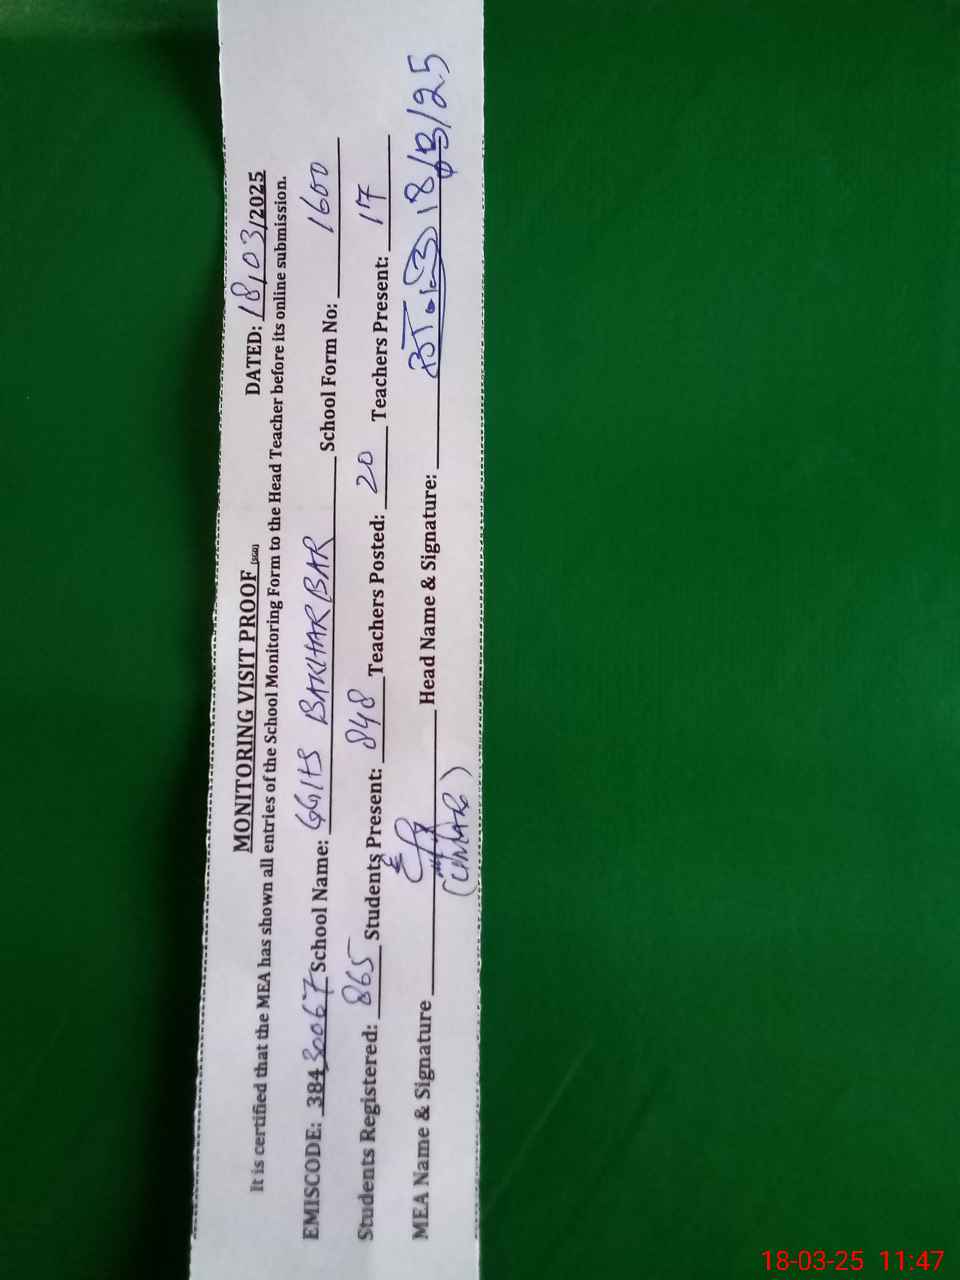 MONITORING VISIT PROOF (SGD) DATED: 18/03/2025
It is certified that the MEA has shown all entries of the School Monitoring Form to the Head Teacher before its online submission.
EMISCODE: 38430067 School Name: GGHS BAKHARBAR School Form No: 1600
Students Registered: 865 Students Present: 848 Teachers Posted: 20 Teachers Present: 17
MEA Name & Signature Head Name & Signature: 18/03/25
(UMAR)
18-03-25 11:47